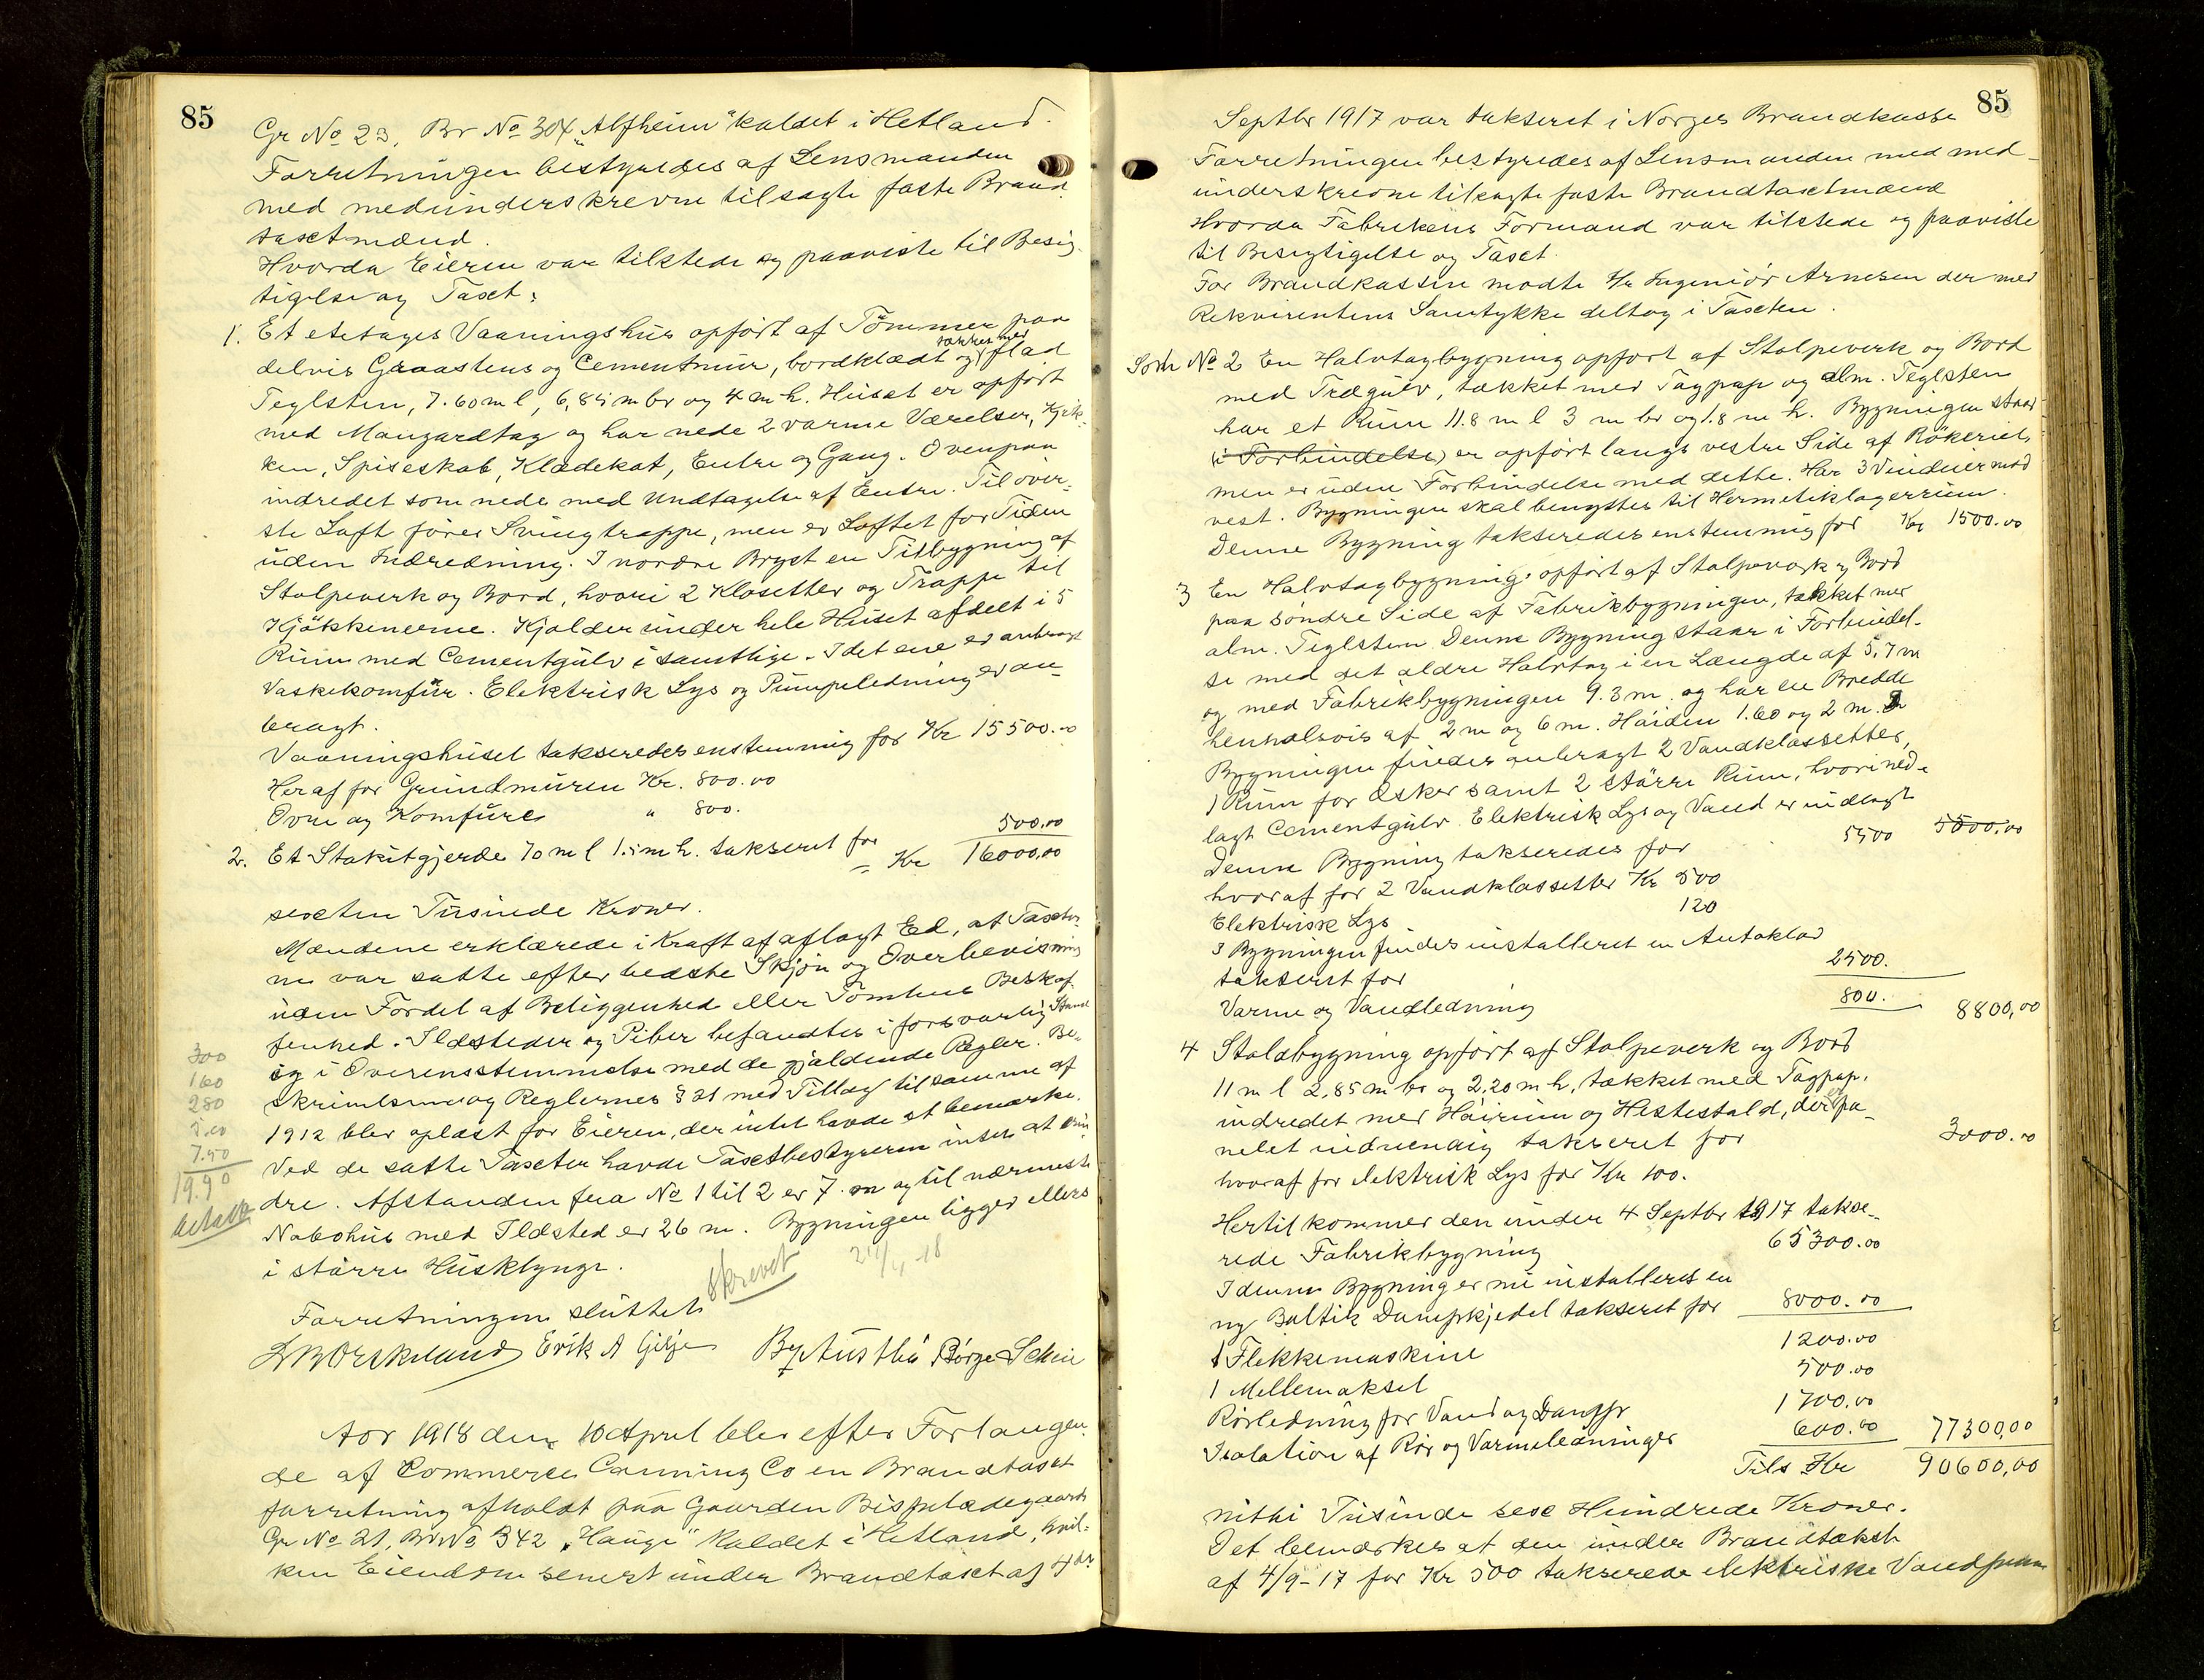 85
Gr No 23, Br No 304 „Alfheim" kaldet i Hetland.
Forretningen bestyredes af Lensmanden
med medunderskrevne tilsagte faste Brand
taxtmænd.
Hvorda Eieren var tilstede og paaviste til Besig-
tigelse og Taxt:
1. Et etetages Vaaningshus opført af Tømmer paa
delvis Graastens og Cementmur, bordklædt og tækket med flad
Teglsten, 7.60 m l, 6,85 m br og 4 m h. Huset er opført
med Mansardtag og har nede 2 varme Værelser, Kjøk-
ken, Spiseskab, Klædekot, Entre og Gang. Ovenpaa
indredet som nede med Undtagelse af Entre. Til øver-
ste Loft fører Svingtrappe, men er Loftet for Tiden
uden Indredning. I nordre Bryst en Tilbygning af
Stolpeverk og Bord, hvori 2 Klosetter og Trappe til
Kjøkkenerne. Kjælder under hele Huset afdelt i 5
Rum med Cementgulv i samtlige. I det ene er anbragt
Vaskekomfur. Elektrisk Lys og Pumpeledning er an-
bragt.
Vaaningshuset takseredes enstemmig for Kr 15500.00
Heraf for Grundmuren Kr. 800.00
Ovne og Komfure " 800.
2. Et Stakitgjerde 70 m l 1.5 m h. takseret for 500.00
= Kr 16000,00
sexten Tusinde Kroner.
Mændene erklærede i Kraft af aflagt Ed, at Taxter-
ne var satte efter bedste Skjøn og Overbevisning
uden Fordel af Beliggenhed eller Tomtens Beskaf-
fenhed. Ildsteder og Piber befandtes i forsvarlig Stand
og i Overensstemmelse med de gjældende Regler. Be-
skrivelsen og Reglernes § 21 med Tillæg til samme af
1912 blev oplæst for Eieren, der intet havde at bemærke.
Ved de satte Taxter havde Taxtbestyreren intet at erin-
dre. Afstanden fra No 1 til 2 er 7 m og til nærmeste
Nabohus med Ildsted er 26 m. Bygningen ligger ellers
i større Husklynge.
300
160
280
7.50
19.90
betalt
Forretningen sluttet
skrevet
24/4-18
Erik A Gilje Børge Scheie
Aar 1918 den 10 April blev efter Forlangen-
de af Commerce Canning Co en Brandtaxt
forretning afholdt paa Gaarden Bispeladegaard
Gr No 21, Br No 342 „Hauge" kaldet i Hetland, hvil-
ken Eiendom senest under Brandtaxt af 4de
85
Septbr 1917 var takseret i Norges Brandkasse
Forretningen bestyredes af Lensmanden med med-
underskrevne tilsagte faste Brandtaxtmænd
Hvorda Fabrikens Formand var tilstede og paaviste
til Besigtigelse og Taxt.
For Brandkassen mødte Hr Ingeniør Arnesen der med
Rekvirentens Samtykke deltog i Taxten.
Som No 2 En Halvtagbygning opført af Stolpeverk og Bord
med Trægulv, tækket med Tagpap og alm. Teglsten
har et Rum 11.8 m l 3 m br og 1.8 m h. Bygningen staar
(i Forbindelse) er opført langs vestre Side af Røkeriet,
men er uden Forbindelse med dette. Har 3 Vinduer mod
vest. Bygningen skal benyttes til Hermetiklagerrum.
Denne Bygning takseredes enstemmig for Kr 1500.00
3 En Halvtagbygning opført af Stolpeverk og Bord
paa søndre Side af Fabrikbygningen, tækket med
alm. Teglsten. Denne Bygning staar i Forbindel-
se med det ældre Halvtag i en Længde af 5,7 m
og med Fabrikbygningen 9.3 m. og har en Bredde
henholsvis af 2 m og 6 m. Høiden 1.60 og 2 m. I
Bygningen findes anbragt 2 Vandklossetter,
1 Rum for Æsker samt 2 større Rum, hvori ned-
lagt Cementgulv. Elektrisk Lys og Vand er indlagt
Denne Bygning takseredes for 5500 5500.00
hvoraf for 2 Vandklossetter Kr 500
Elektrisk Lys 120
I Bygningen findes installeret en Autoklav
takseret for 2500.
Varme og Vandledning 800. 8800,00
4 Staldbygning opført af Stolpeverk og Bord
11 m l 2,85 m br og 2,20 m h, tækket med Tagpap.
indredet med Høirum og Hestestald, der er pa-
nelet indvendig takseret for 3000.00
hvoraf for elektrisk Lys for Kr 100.
Hertil kommer den under 4 Septbr 1917 takse-
rede Fabrikbygning 65300.00
I denne Bygning er nu installeret en
ny Baltik Dampkjedel takseret for 8000.00
1 Flekkemaskine 1200.00
1 Mellemaksel 500.00
Rørledning for Vand og Damp for 1700.00
Isolation af Rør og Varmeledninger 600.00 77300,00
Tils Kr 90600,00
nitti Tusinde sex Hundrede Kroner.
Det bemærkes at den under Brandtakst
af 4/9-17 for Kr 500 takserede elektriske Vandpum